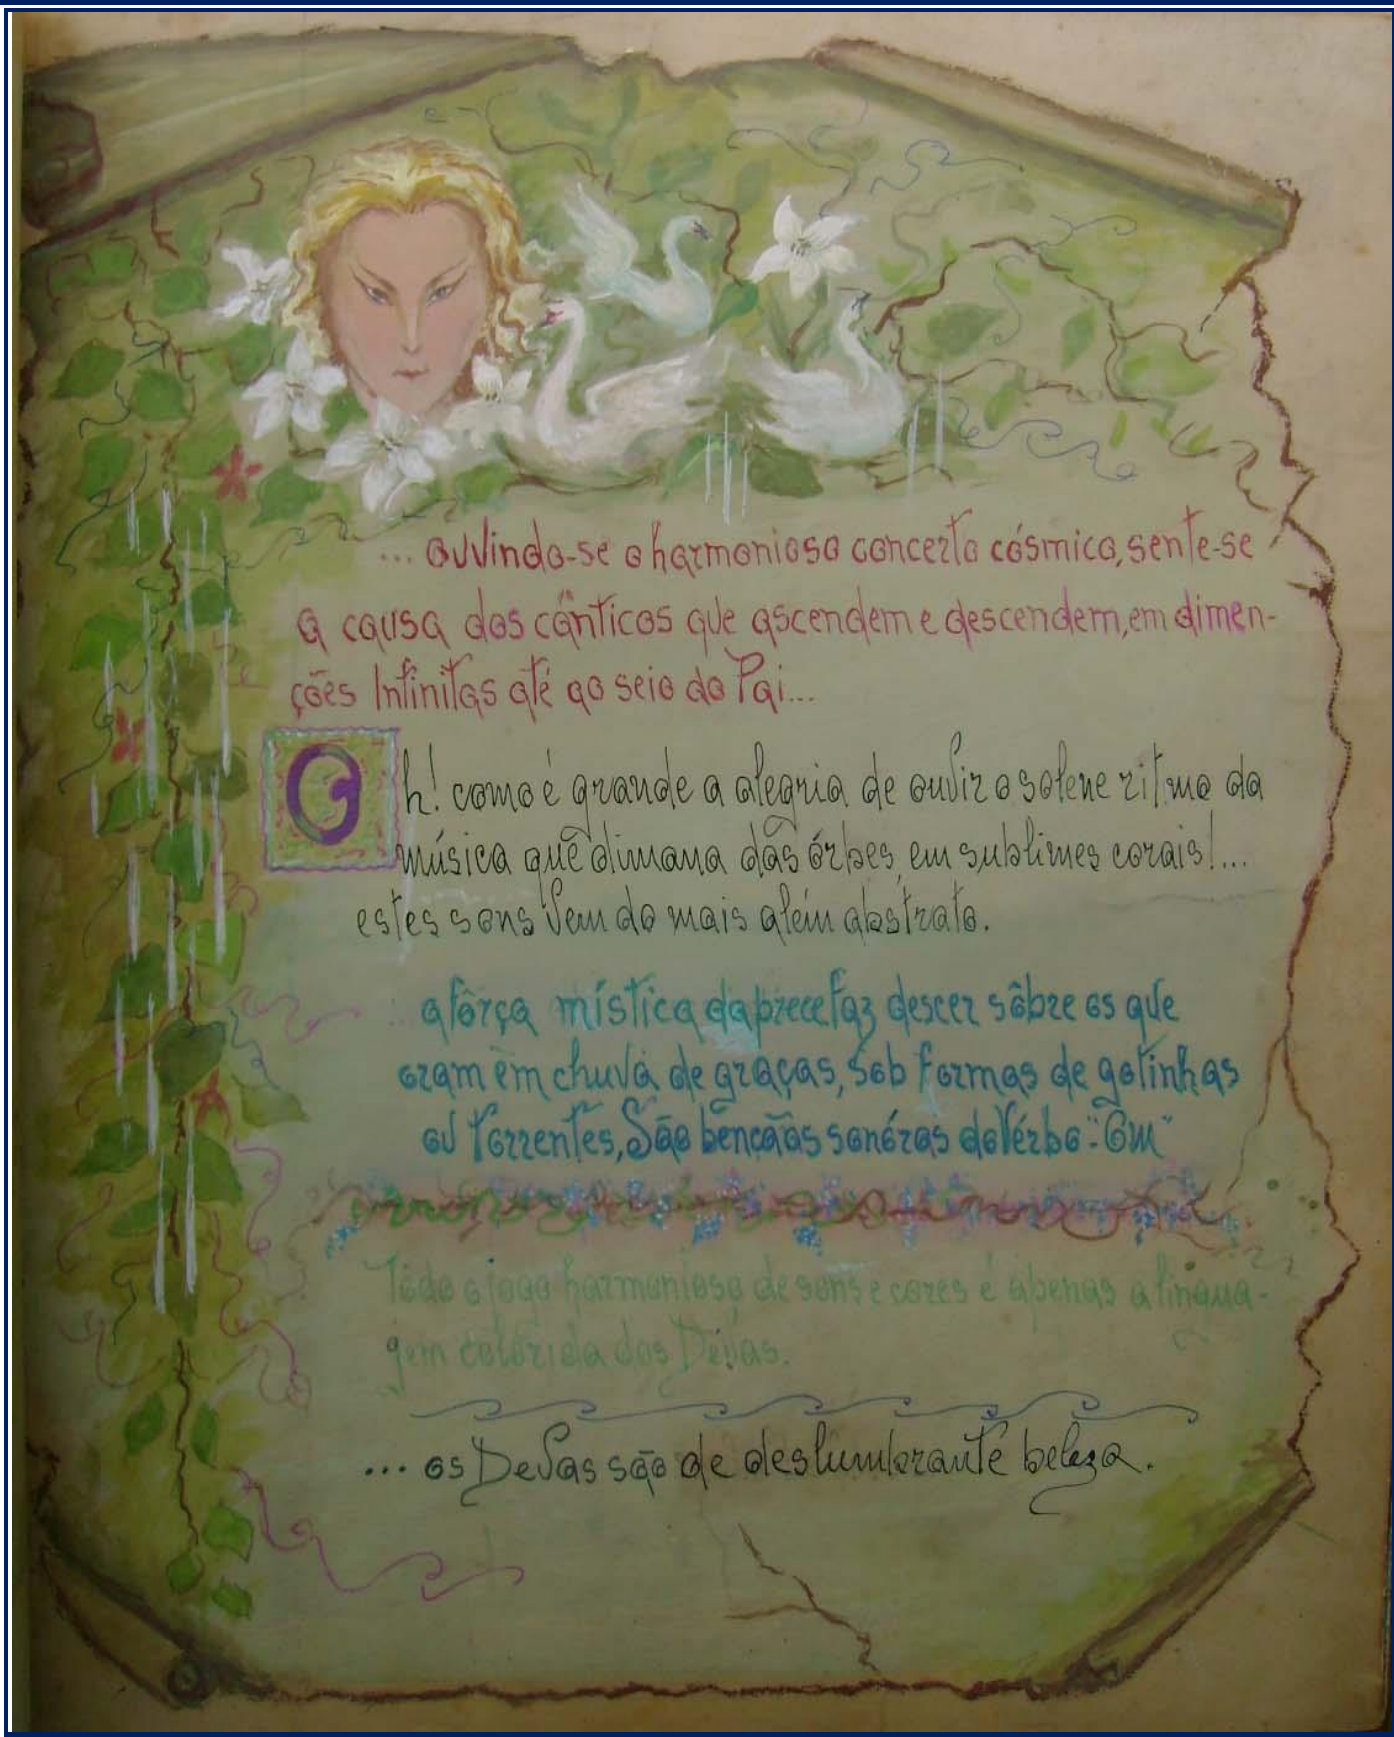 ... ouvindo-se o harmonioso concerto cósmico, sente-se
a causa dos cânticos que ascendem e descendem, em dimen-
ções Infinitas até ao seio do Pai...
Oh! como é grande a alegria de ouvir o solene ritmo da
música que dimana das órbes, em sublimes corais!...
estes sons vem do mais além abstrato.
a fôrça mística da prece faz descer sôbre os que
oram em chuva de graças, sob formas de gotinhas
ou torrentes, São bençãos sonóras do Vérbo "Om"
Todo o jogo harmonioso de sons e cores é apenas a lingua-
gem colorida dos Devas.
... os Devas são de deslumbrante beleza.